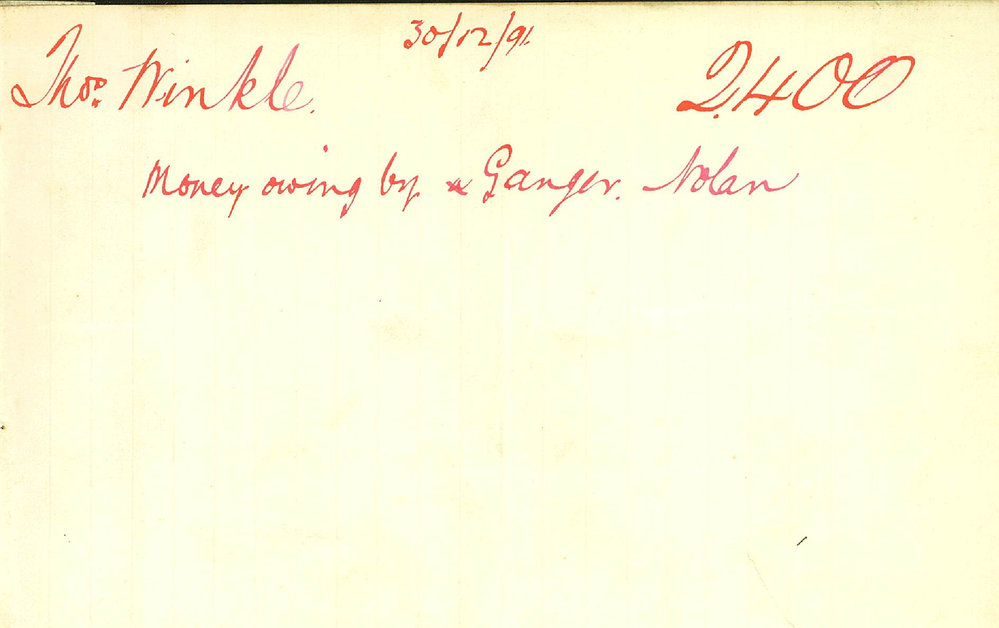 30/12/91.
Thos. Winkle. 2400
Money owing by Ganger. Nolan